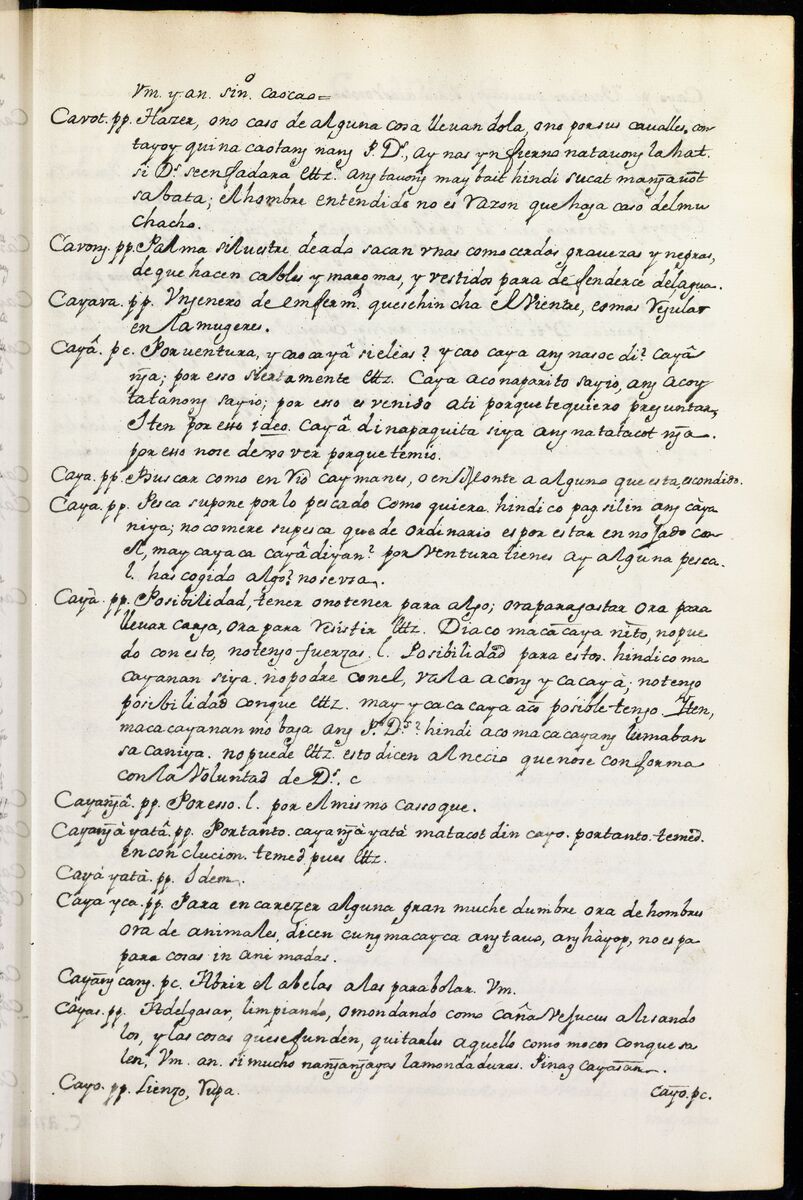 Vm. y an. sin. caocao=
Cavot. pp. Hazer, ono caso de alguna cosa llevandola, ono por sus cavalles, on
tayoy quina caotang nang P. Ds, ay nas yn fierno natavong lahat.
si Ds. seenfadara Ettz. ang tavong may bait hindi sucat mangavot
sa bata; el hombre entendido no es razon que haja caso del mu
chacho.
Cavong. pp. Palma silvestre deado sacan vnas como cerdas gruezas y negras,
de que hacen cables y maromas, y vestidos para defenderce delagua.
Cayava. pp. Vn jenero de enferm. quesehin cha el Vientre, esmas Regular
en lamugeres.
Cayâ. pc. Porventura, y cao cayâ sieleas? y cao caya ang nasoc di? cayâ
nga; por esso siertamente Ettz. Caya aco naparito sayio, ang acoy
tatanong sayio; por esso es venido ati porque te quiero preguntar,
Iten por esso ideo. Cayâ di napaquita siya ang natatacot nga.
por esso nose dexo ver porque temio.
Caya. pp. Buscar como en Rio caymanes, o en Monte a alguno que esta escondido.
Caya. pp. Pesca supone por lo pescado como quiera. hindi co pag silin ang càya
niya; no comere supesca que de ordinario es por estar en no jado con
el, may caya ca cayâ diyan? por Ventura tienes ay alguna pesca.
l. has cogido algo? nosevsa.
Cayà. pp. Posibilidad, tener onotener para algo; ora para gastar ora para
llevar carga, ora para resistir Ettz. Diaco macacaya nito, nopue
do con esto, notengo fuerzas. l. Posibilidad para estos. hindico ma
cayanan siya. nopodre conel, vala acong y cacayà; notengo
posibilidad conque Ettz. may y cacacaya aco posible tengo. Iten,
macacayanan mo baga ang P. Ds? hindi aco macacayang lumaban
sa caniya. no puede Ettz. esto dicen al necio que nose conforma
con la Voluntad de Ds. c
Cayangâ. pp. Por esso. l. por el mismo casso que.
Cayangàyatà. pp. Portanto. cayangàyatà matacot din cayo. portanto temed.
en conclucion. temed pues Ettz.
Cayàyatà. pp. Idem.
Caya yca. pp. Para en carezer alguna gran muche dumbre ora de hombres
ora de animales, dicen cung macayca ang tavo, ang hàyop, no es pa
para cosas in ani madas.
Cayang cang. pc. Abrir el abelas alas parabolar. Vm.
Cayas. pp. Adelgasar, limpiando, omondando como caña Vejucus alisando
los, y las cosas quesefunden, quitarles aquello como mocos conque sa
len, Vm. an. si mucho nangangayas lamondaduras. Pinag cayasan.
Cayo. pp. Lienzo, Rupa.
cayo. pc.